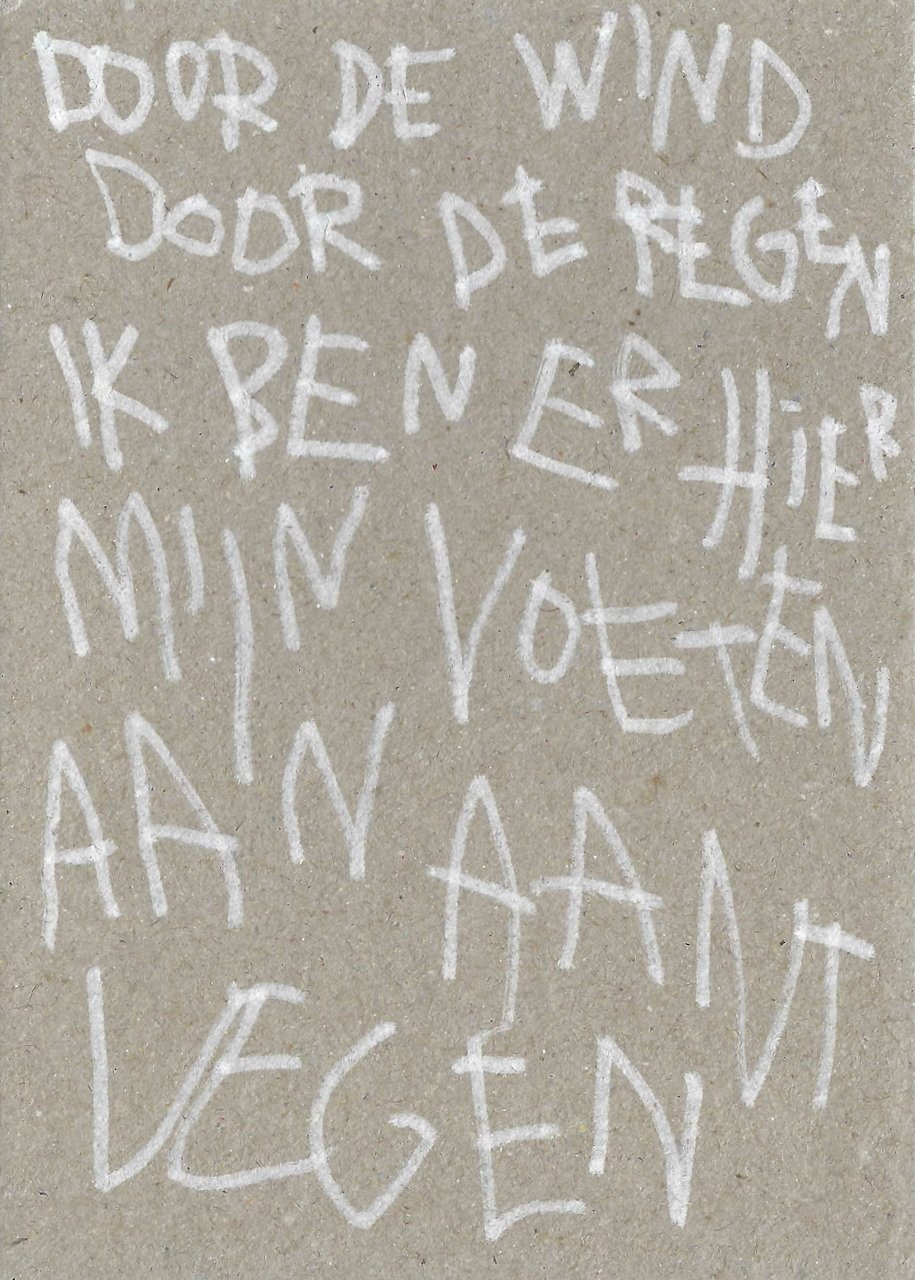 DOOR DE WIND
DOOR DE REGEN
IK BEN ER HiER
MIJN VOETEN
AAN AANT
VEGEN